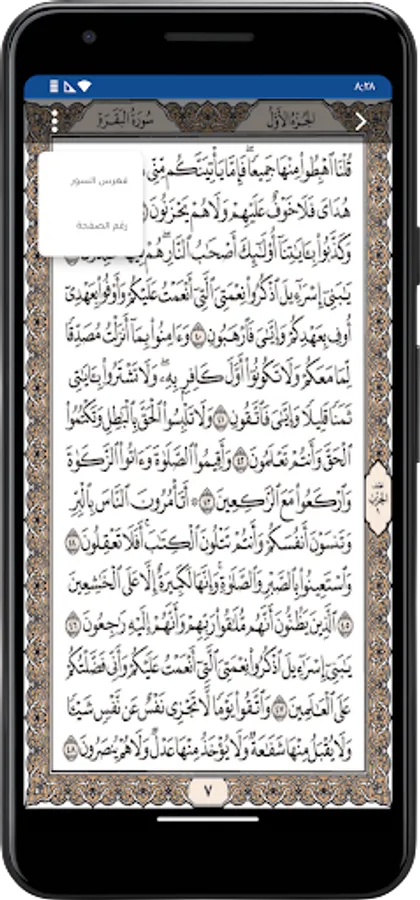 ٨:٢٨
سُورَةُ البَقَرَةِ الجُزْءُ الأَوَّلُ
فهرس السور
رقم الصفحة
قُلْنَا ٱهْبِطُوا۟ مِنْهَا جَمِيعًۭا ۖ فَإِمَّا يَأْتِيَنَّكُم مِّنِّى
هُدَاىَ فَلَا خَوْفٌ عَلَيْهِمْ وَلَا هُمْ يَحْزَنُونَ
وَكَذَّبُوا۟ بِـَٔايَـٰتِنَآ أُو۟لَـٰٓئِكَ أَصْحَـٰبُ ٱلنَّارِ ۖ هُمْ
يَـٰبَنِىٓ إِسْرَٰٓءِيلَ ٱذْكُرُوا۟ نِعْمَتِىَ ٱلَّتِىٓ أَنْعَمْتُ عَلَيْكُمْ وَأَوْفُوا۟ بِعَهْدِىٓ
أُوفِ بِعَهْدِكُمْ وَإِيَّـٰىَ فَٱرْهَبُونِ ٤٠ وَءَامِنُوا۟ بِمَآ أَنزَلْتُ مُصَدِّقًۭا
لِّمَا مَعَكُمْ وَلَا تَكُونُوٓا۟ أَوَّلَ كَافِرٍۭ بِهِۦ ۖ وَلَا تَشْتَرُوا۟ بِـَٔايَـٰتِى
ثَمَنًۭا قَلِيلًۭا وَإِيَّـٰىَ فَٱتَّقُونِ ٤١ وَلَا تَلْبِسُوا۟ ٱلْحَقَّ بِٱلْبَـٰطِلِ وَتَكْتُمُوا۟
ٱلْحَقَّ وَأَنتُمْ تَعْلَمُونَ ٤٢ وَأَقِيمُوا۟ ٱلصَّلَوٰةَ وَءَاتُوا۟ ٱلزَّكَوٰةَ
وَٱرْكَعُوا۟ مَعَ ٱلرَّٰكِعِينَ ٤٣ ۞ أَتَأْمُرُونَ ٱلنَّاسَ بِٱلْبِرِّ
وَتَنسَوْنَ أَنفُسَكُمْ وَأَنتُمْ تَتْلُونَ ٱلْكِتَـٰبَ ۚ أَفَلَا تَعْقِلُونَ ٤٤
وَٱسْتَعِينُوا۟ بِٱلصَّبْرِ وَٱلصَّلَوٰةِ ۚ وَإِنَّهَا لَكَبِيرَةٌ إِلَّا عَلَى ٱلْخَـٰشِعِينَ
٤٥ ٱلَّذِينَ يَظُنُّونَ أَنَّهُم مُّلَـٰقُوا۟ رَبِّهِمْ وَأَنَّهُمْ إِلَيْهِ رَٰجِعُونَ ٤٦
يَـٰبَنِىٓ إِسْرَٰٓءِيلَ ٱذْكُرُوا۟ نِعْمَتِىَ ٱلَّتِىٓ أَنْعَمْتُ عَلَيْكُمْ وَأَنِّى فَضَّلْتُكُمْ
عَلَى ٱلْعَـٰلَمِينَ ٤٧ وَٱتَّقُوا۟ يَوْمًۭا لَّا تَجْزِى نَفْسٌ عَن نَّفْسٍۢ شَيْـًۭٔا
وَلَا يُقْبَلُ مِنْهَا شَفَـٰعَةٌۭ وَلَا يُؤْخَذُ مِنْهَا عَدْلٌۭ وَلَا هُمْ يُنصَرُونَ ٤٨
٧